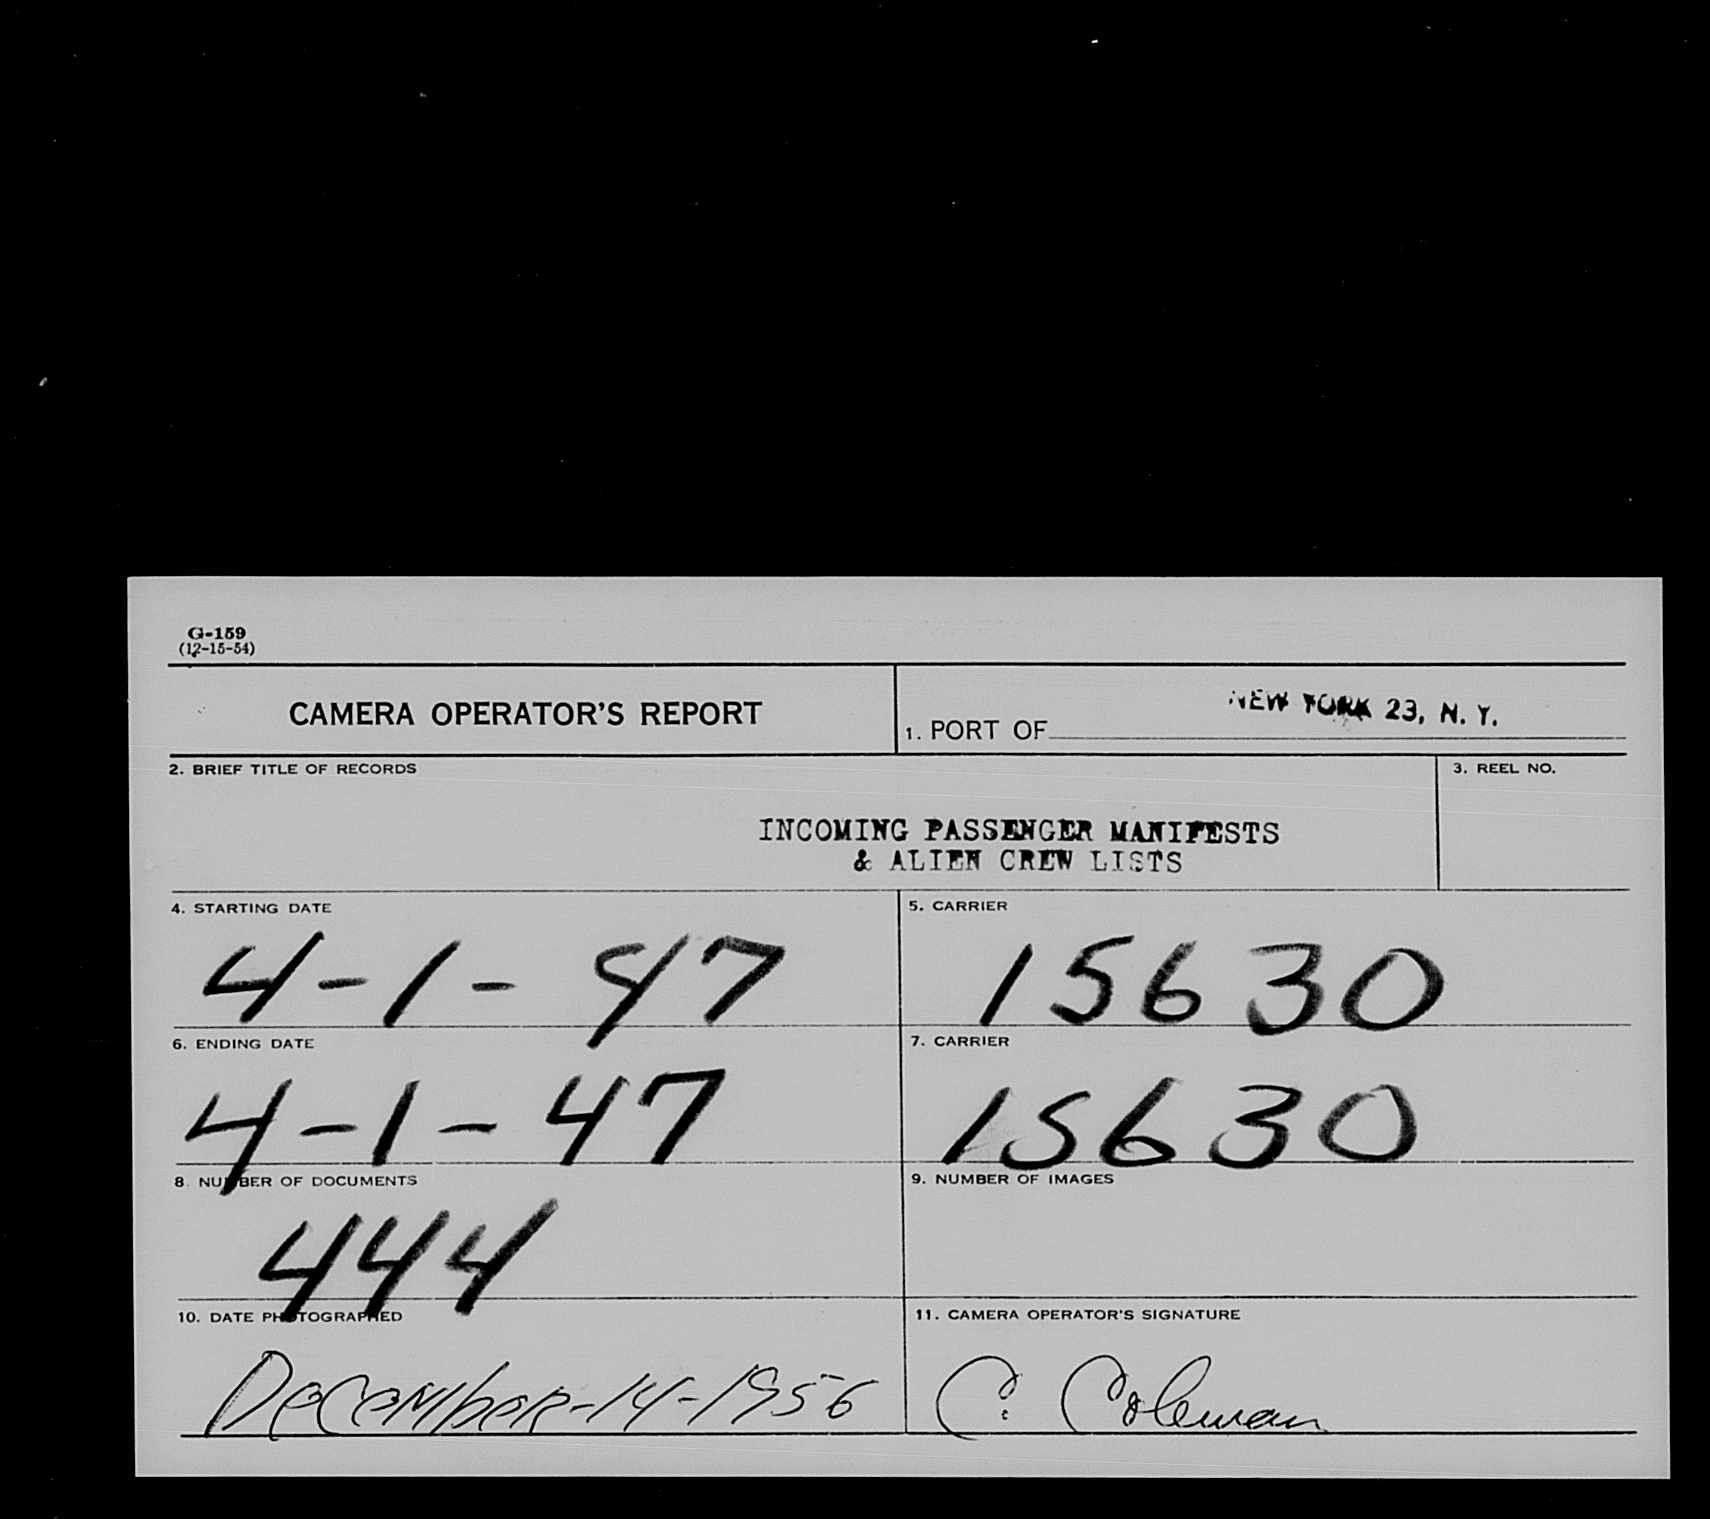 G-159
(12-15-54)
CAMERA OPERATOR'S REPORT
1. PORT OF NEW YORK 23, N. Y.
2. BRIEF TITLE OF RECORDS
3. REEL NO.
INCOMING PASSENGER MANIFESTS
& ALIEN CREW LISTS
4. STARTING DATE
4-1-47
5. CARRIER
15630
6. ENDING DATE
4-1-47
7. CARRIER
15630
8. NUMBER OF DOCUMENTS
444
9. NUMBER OF IMAGES
10. DATE PHOTOGRAPHED
DECEMBER-14-1956
11. CAMERA OPERATOR'S SIGNATURE
C. Coleman